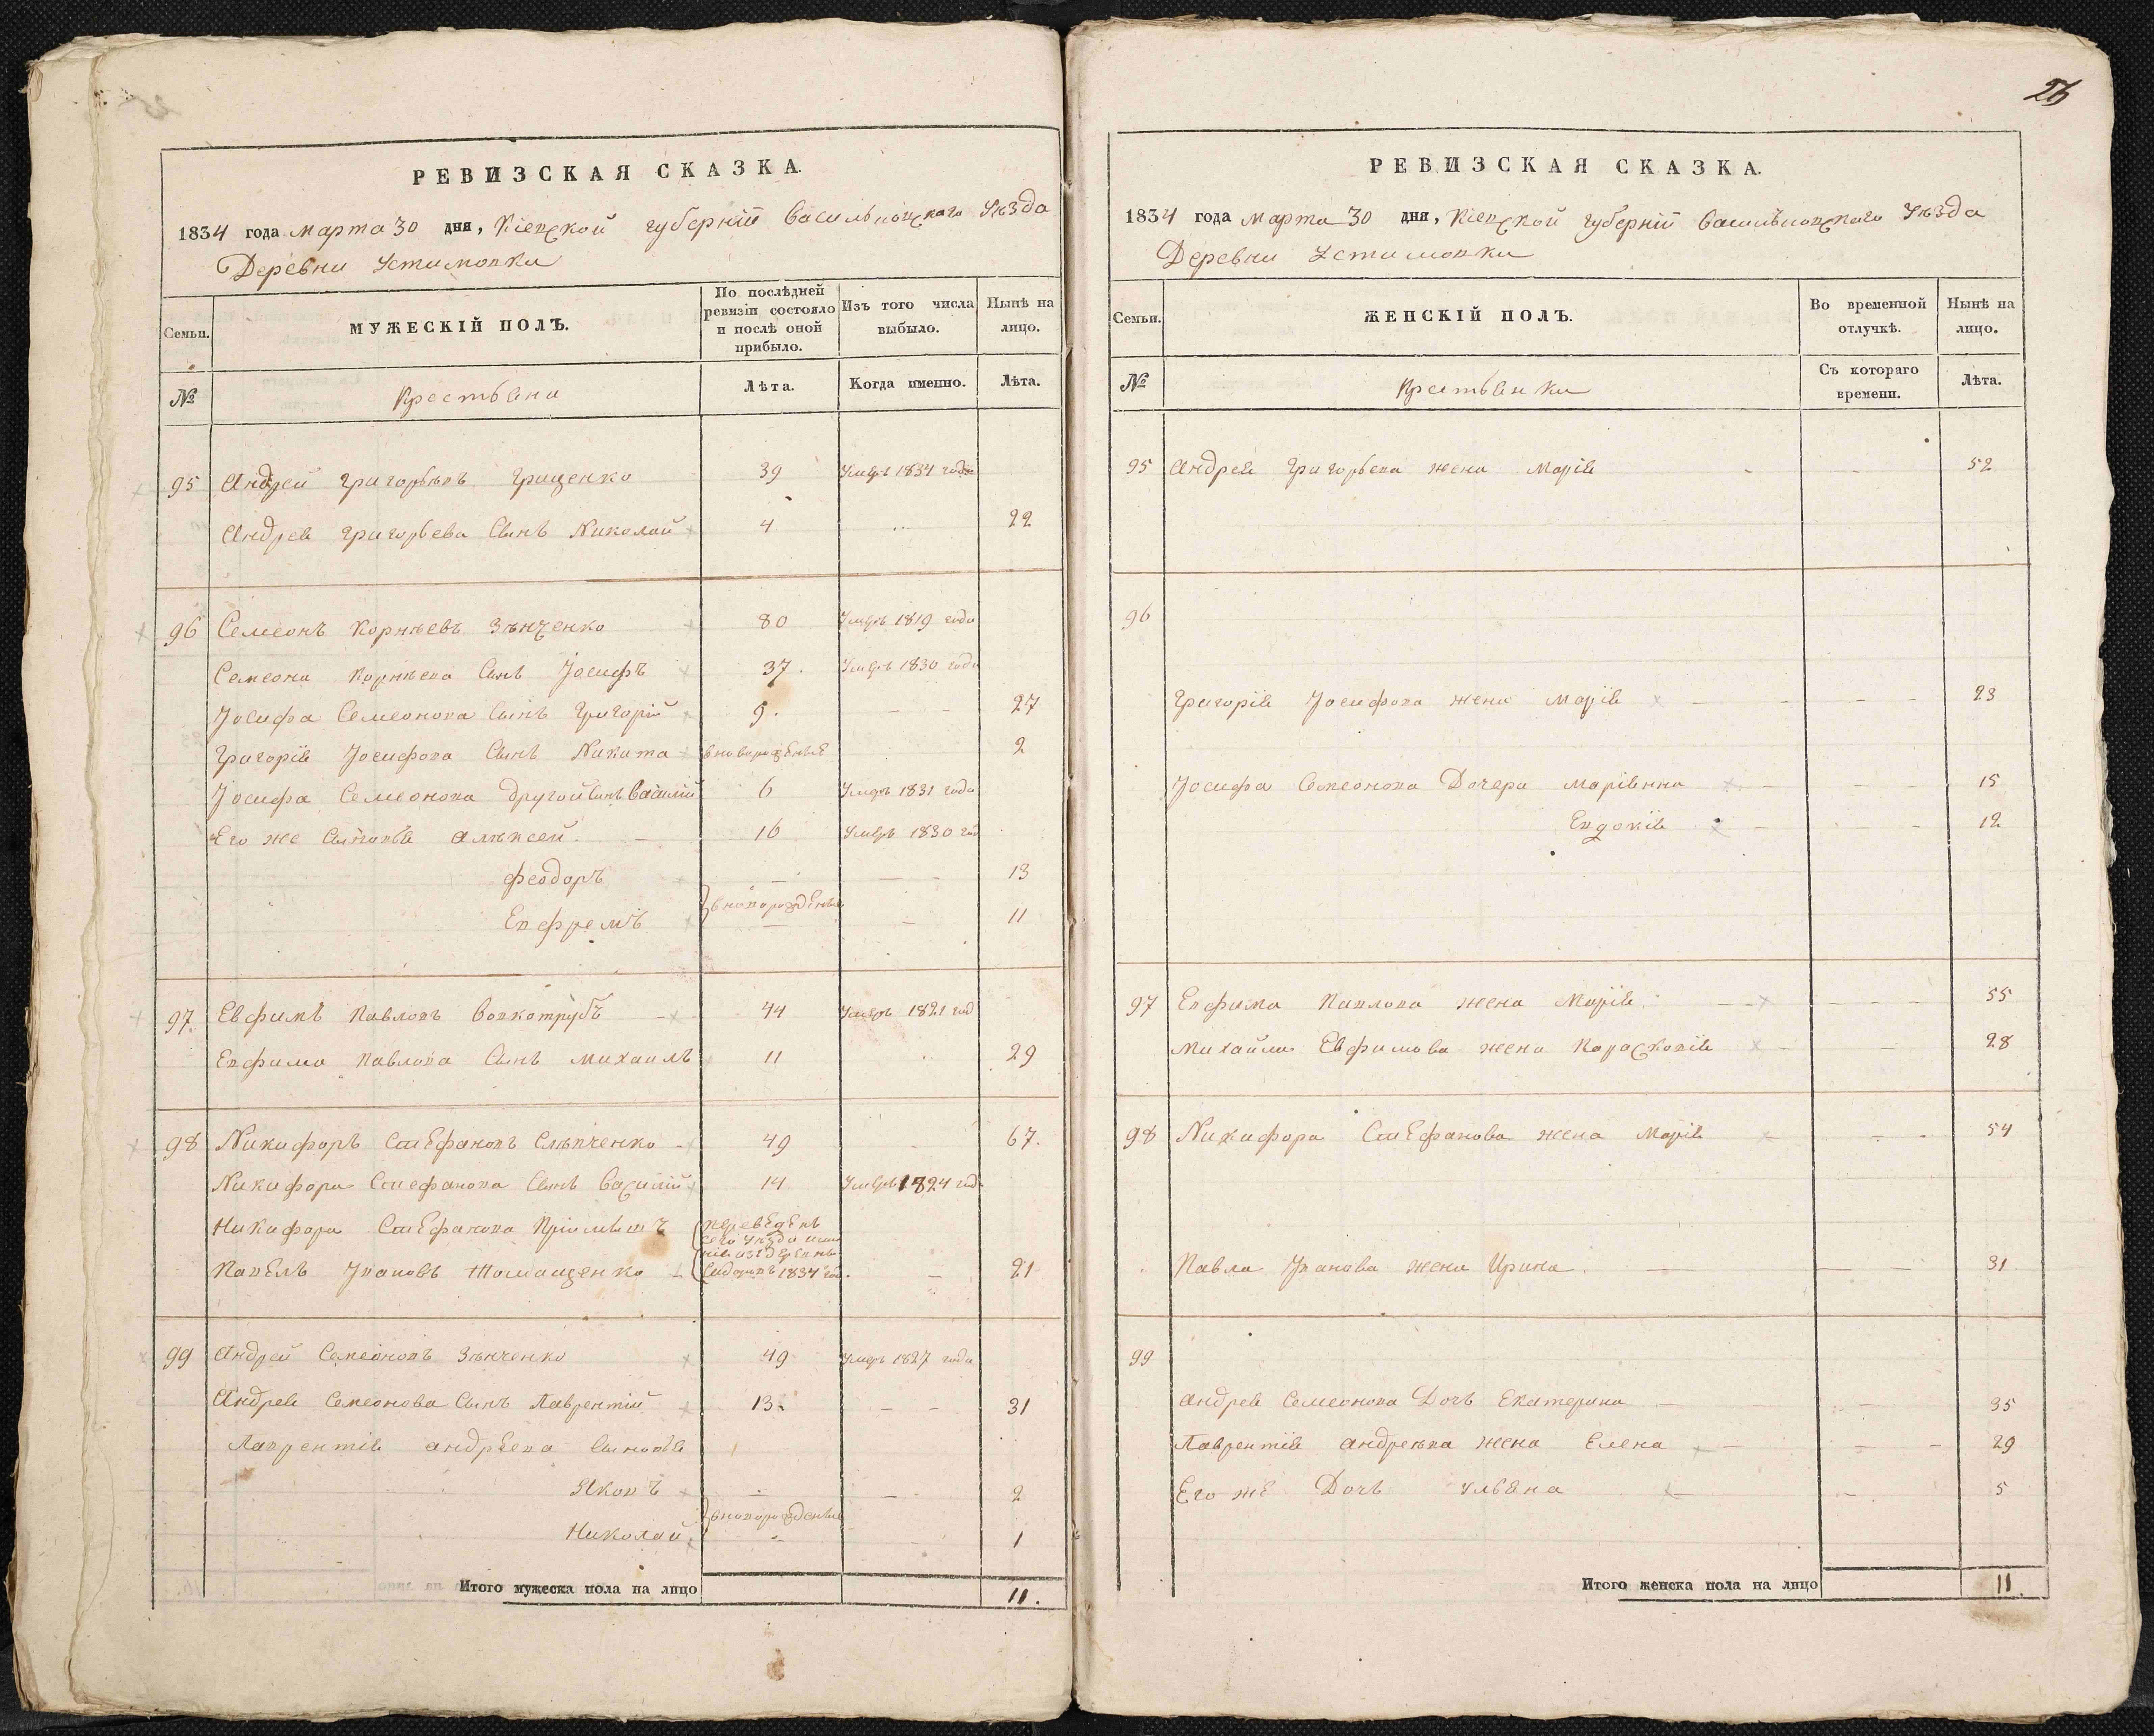 26
РЕВИЗСКАЯ СКАЗКА.
1834 года Марта 30 дня, Кіевской губерніи Васильковскаго Уѣзда
Деревни Устимовки
Семьи.
МУЖЕСКІЙ ПОЛЪ.
По послѣдней ревизіи состояло и послѣ оной прибыло.
Изъ того числа выбыло.
Нынѣ на лицо.
№
Крестьяни
Лѣта.
Когда именно.
Лѣта.
95 Андрей Григорьевъ Гриценко 39 Умеръ 1834 года
Андрея Григорьева Сынъ Николай 4 22
96 Семеонъ Корнѣевъ Зѣнченко 80 Умеръ 1819 года
Семеона Корнѣева Сынъ Јосифъ 37. Умеръ 1830 года
Јосифа Семеонова Сынъ Григорій 9. — — 27
Григорія Јосифова Сынъ Никита вноворожденые 2
Јосифа Семеонова другой Сынъ Василій 6 Умеръ 1831 года
Его же Сыновья Алѣксей. — 16 Умеръ 1830 год
Феодоръ — — — 13
вноворожденые
Евфремъ — — 11
97. Евфимъ Павловъ Вовкотрубъ — 44 Умеръ 1821 год
Евфима Павлова Сынъ Михаилъ 11 29
98 Никифоръ Стефановъ Слѣпченко - 49 67.
Никифора Стефанова Сынъ Василій 14 Умеръ 1824 год
Никифора Стефанова Пріимышъ переведенъ
сего уѣзда
Павелъ Јвановъ Томащенко 1834 год. — 21
99 Андрей Семеоновъ Зѣнченко 49 Умеръ 1827 года
Андрея Семеонова Сынъ Лаврентій 13. — — 31
Лаврентія Андреева Сыновья
Яковъ — — 2
вноворожденые
Николай 1
Итого мужеска пола на лицо 11.
РЕВИЗСКАЯ СКАЗКА.
1834 года Марта 30 дня, Кіевской Губерніи Васильковскаго Уѣзда
Деревни Устимовки
Семьи.
ЖЕНСКІЙ ПОЛЪ.
Во временной отлучкѣ.
Нынѣ на лицо.
№
Крестьянки
Съ котораго времени.
Лѣта.
95 Андрея Григорьева жена Марія - — 52
96
Григорія Јосифова жена Марія — — — 23
Јосифа Семеонова Дочери Маріянна — — — 15
Евдокія — — — 12
97 Евфима Павлова жена Марія — — — 55
Михайла Евфимова жена Параскевія — — 28
98 Никифора Стефанова жена Марія — - — 54
Павла Јванова жена Ирина. — — — 31
99
Андрея Семеонова Дочь Екатерина — — 35
Лаврентія Андреева жена Елена — — — 29
Его же Дочь Ульяна — — 5
Итого женска пола на лицо 11.